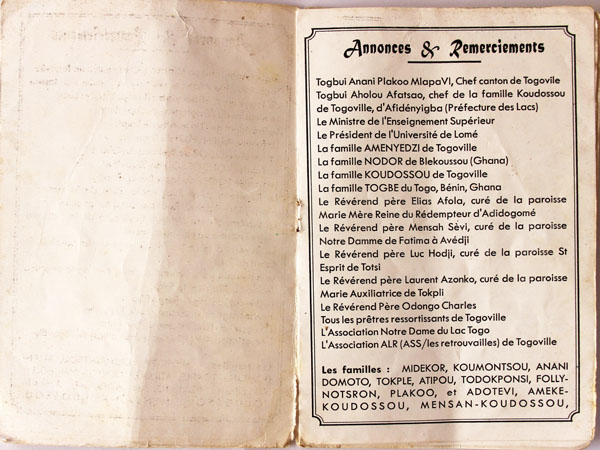 Annonces & Remerciements
Togbui Anani Plakoo MlapaVI, Chef canton de Togovile
Togbui Aholou Afatsao, chef de la famille Koudossou
de Togoville, d'Afidényigba (Préfecture des Lacs)
Le Ministre de l'Enseignement Supérieur
Le Président de l'Université de Lomé
La famille AMENYEDZI de Togoville
La famille NODOR de Blekoussou (Ghana)
La famille KOUDOSSOU de Togoville
La famille TOGBE du Togo, Bénin, Ghana
Le Révérend père Elias Afola, curé de la paroisse
Marie Mère Reine du Rédempteur d'Adidogomé
Le Révérend père Mensah Sèvi, curé de la paroisse
Notre Damme de Fatima à Avédji
Le Révérend père Luc Hodji, curé de la paroisse St
Esprit de Totsi
Le Révérend père Laurent Azonko, curé de la paroisse
Marie Auxiliatrice de Tokpli
Le Révérend Père Odongo Charles
Tous les prêtres ressortissants de Togoville
L'Association Notre Dame du Lac Togo
L'Association ALR (ASS/les retrouvailles) de Togoville
Les familles : MIDEKOR, KOUMONTSOU, ANANI
DOMOTO, TOKPLE, ATIPOU, TODOKPONSI, FOLLY-
NOTSRON, PLAKOO, et ADOTEVI, AMEKE-
KOUDOSSOU, MENSAN-KOUDOSSOU,